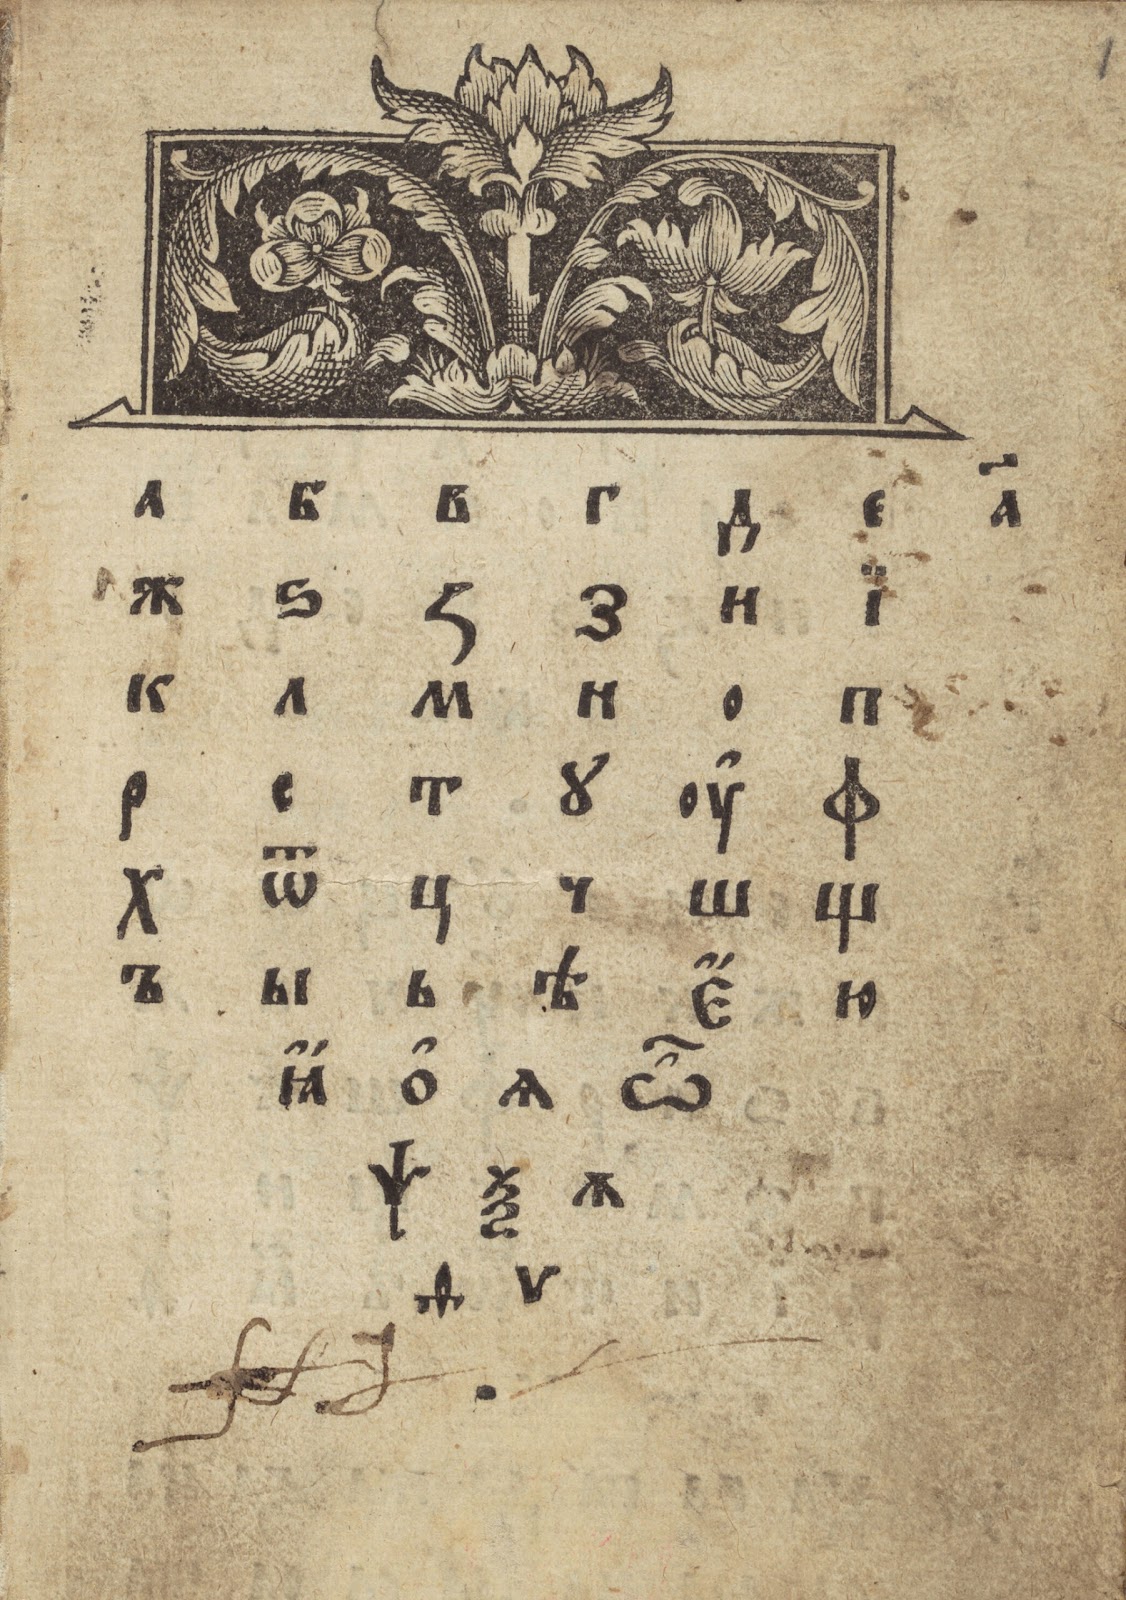 а б в г д є а҃
ж ѕ ꙁ з и ї
к л м н о п
р с т ꙋ оу҆ ф
х ѿ ц ч ш щ
ъ ы ь ѣ є҆́ ю
ꙗ҆́ о҆ ѧ ѽ
ѱ ѯ ѫ
ѳ ѵ
1